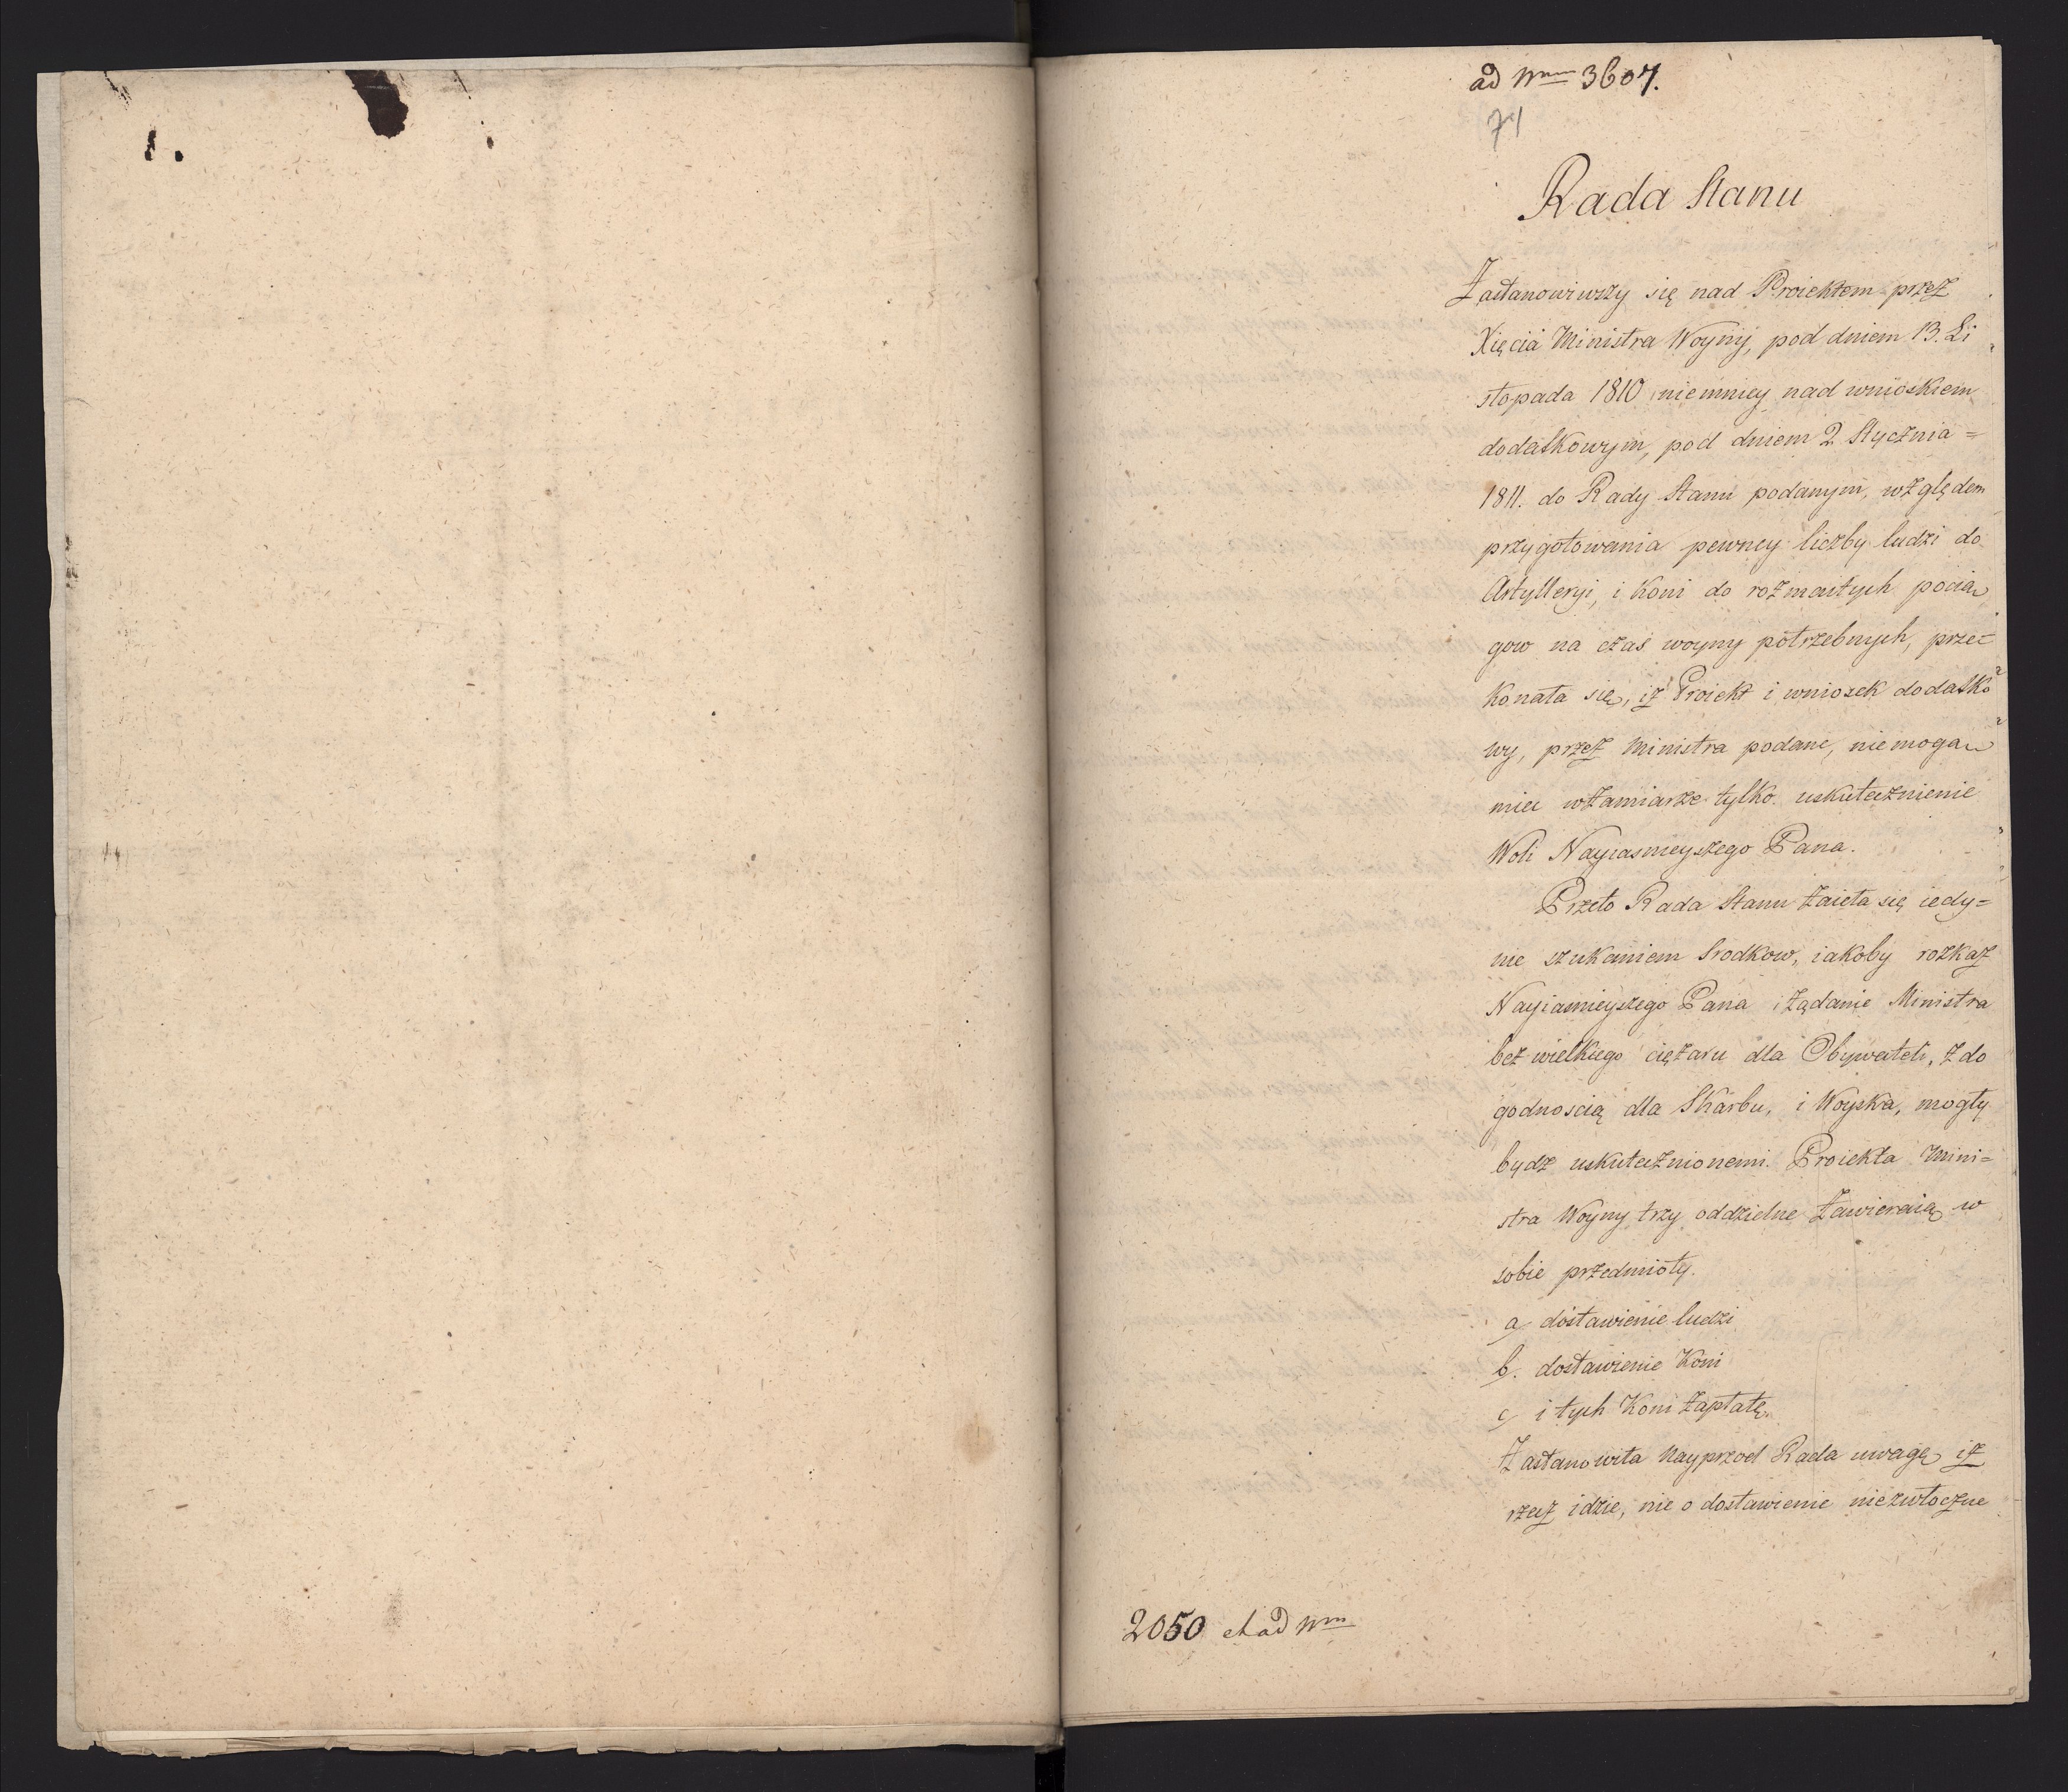 ad Nrum 3607.
71
Rada Stanu
Zastanowiwszy się nad Proiektem przez
Xięcia Ministra Woyny, pod dniem 13. Li
stopada 1810 niemniey nad wnioskiem
dodatkowym, pod dniem 2 Stycznia =
1811. do Rady Stanu podanym, względem
przygotowania pewney liczby ludzi do
Artylleryi, i Koni do rozmaitych pocią
gow na czas woyny potrzebnych, prze=
konała się, iż Proiekt i wniosek dodatko
wy, przez Ministra podane, niemogą
mieć w zamiarze tylko uskutecznienie
Woli Nayiasnieyszego Pana.
Przeto Rada Stanu zaieła się iedy=
nie szukaniem srodkow, iakoby rozkaz
Nayiasnieyszego Pana i żądanie Ministra
bez wielkiego ciężaru dla Obywateli, z do
godnoscią dla Skarbu, i Woyska, mogły
bydz uskutecznionemi. Proiekta Mini=
stra Woyny trzy oddzielne zawieraią w
sobie przedmioty.
a/ dostawienie ludzi
b. dostawienie Koni
c/ i tych Koni zapłatę.
Zastanowiła nayprzod Rada uwagę iż
rzecz idzie, nie o dostawienie niezwłoczne
2050 et ad Nrm